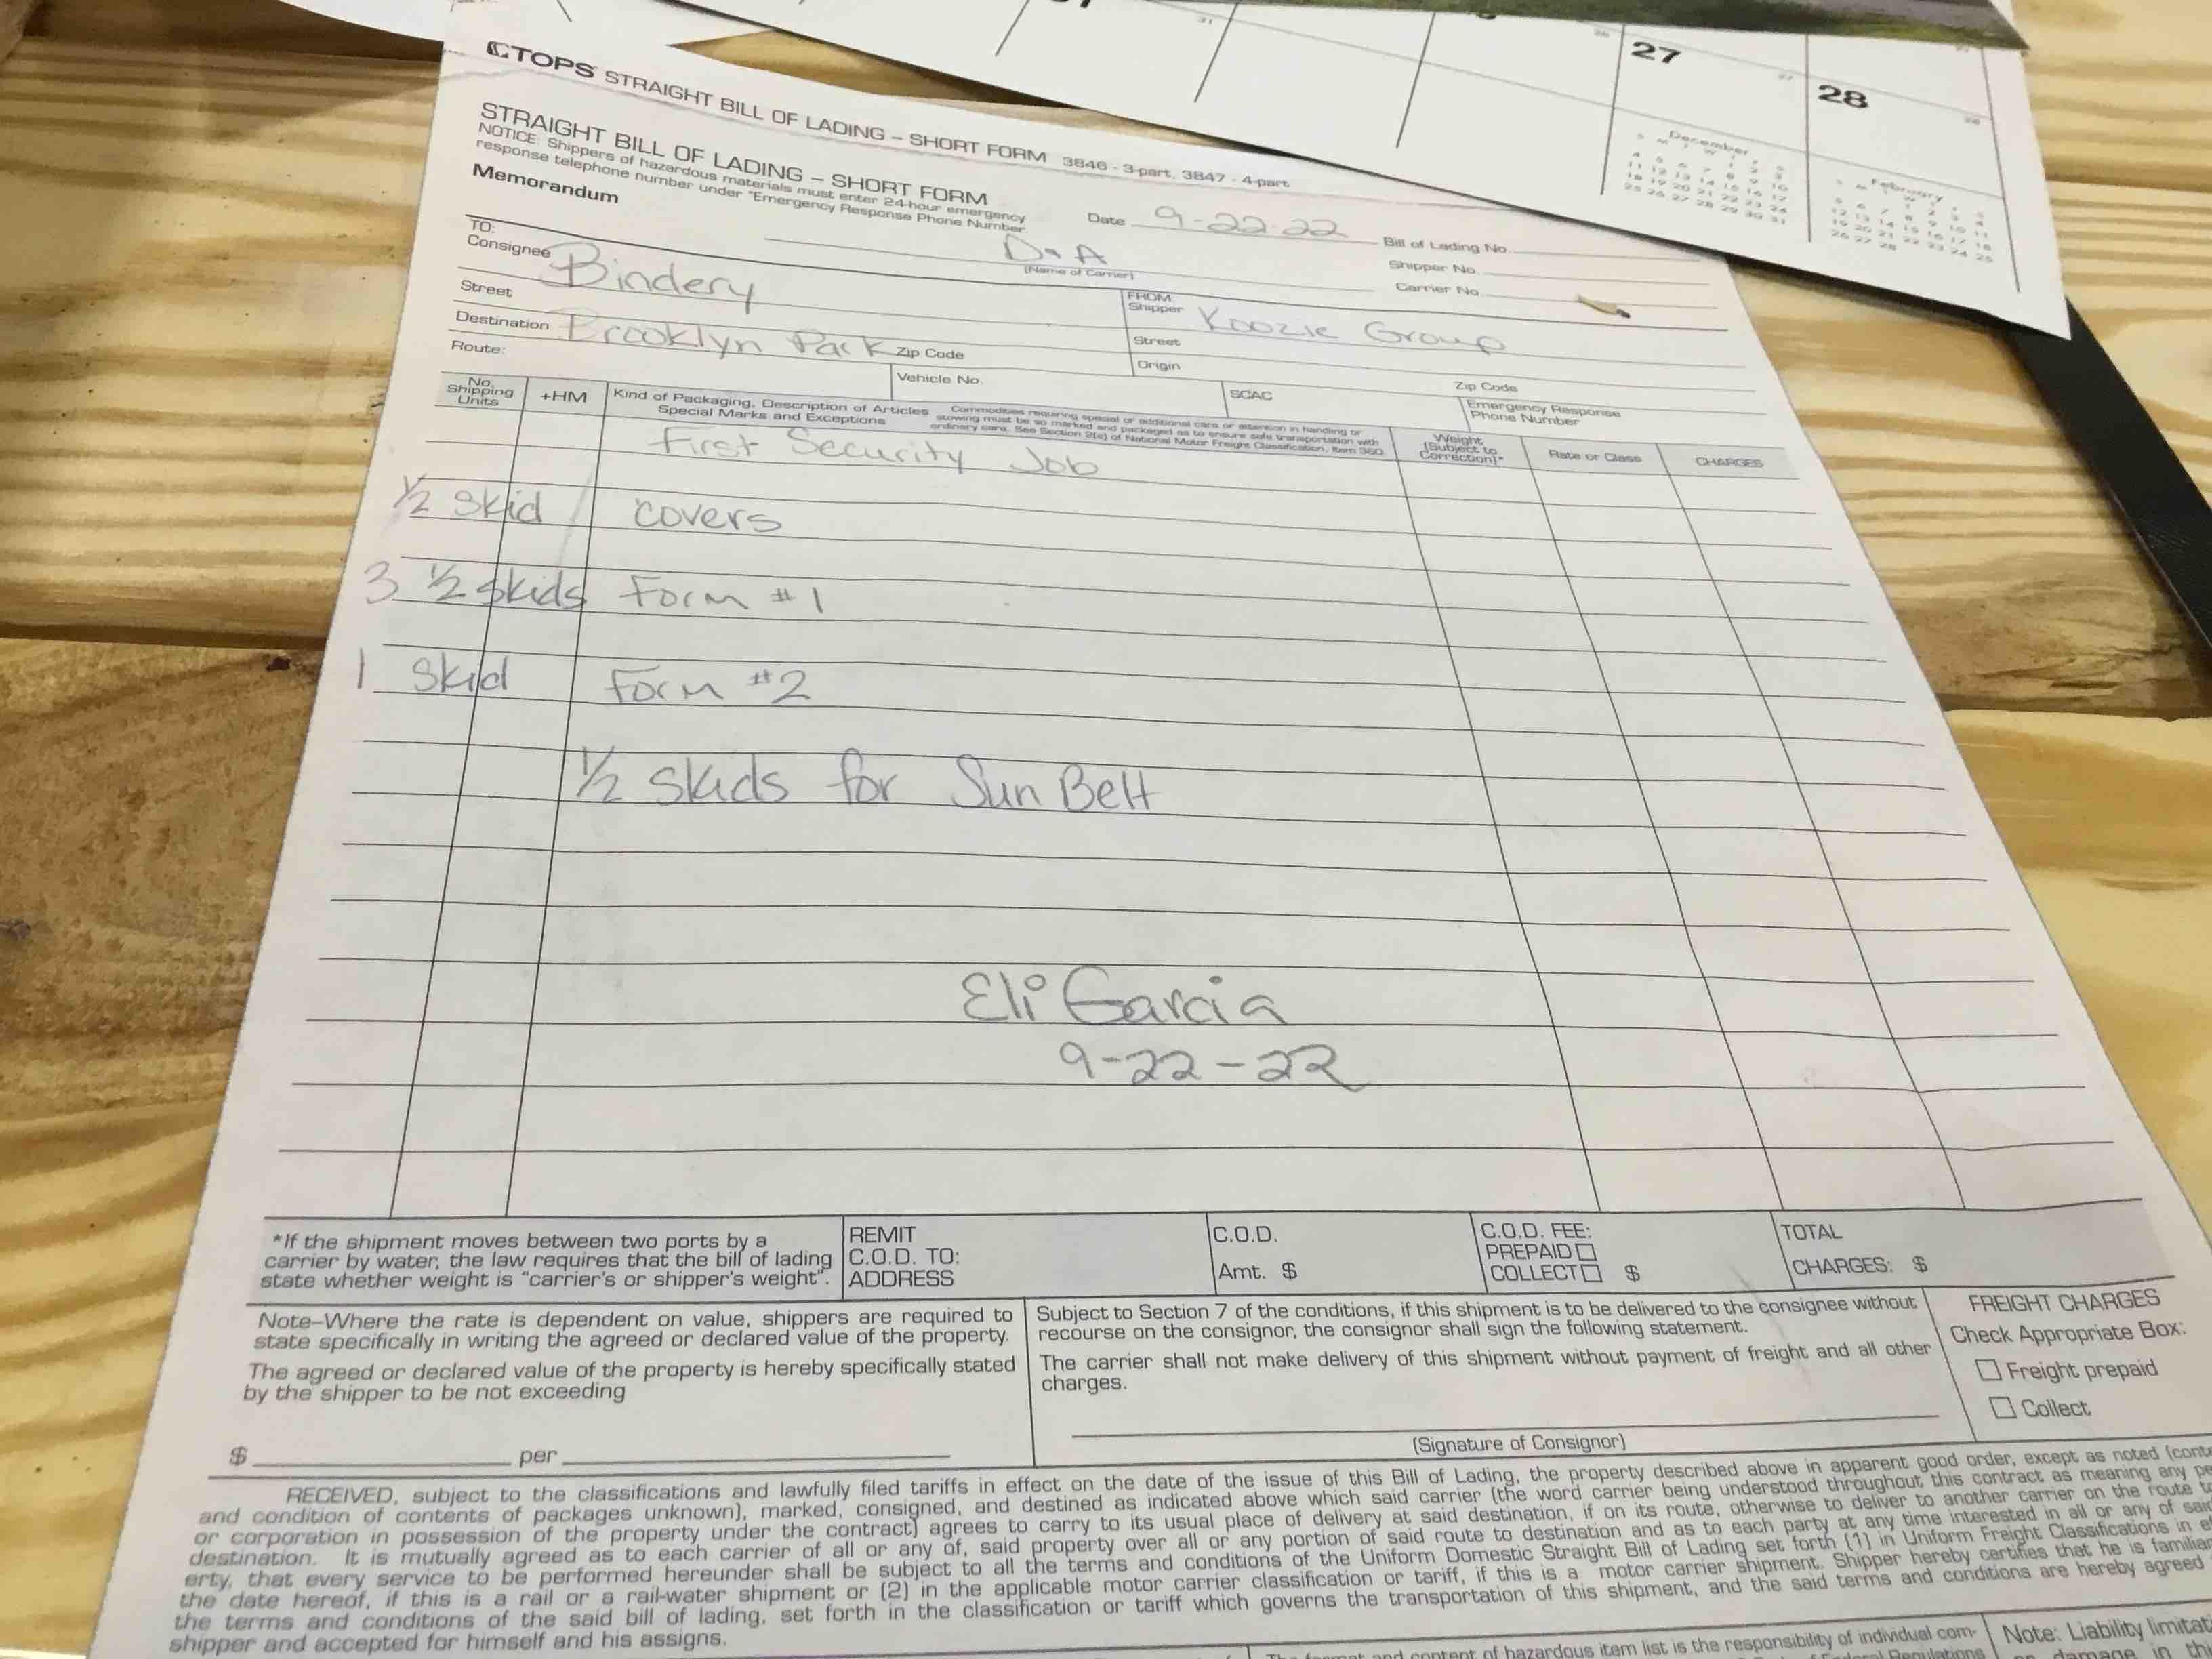 27
28
December
February
TOPS STRAIGHT BILL OF LADING – SHORT FORM 3846 - 3-part, 3847 - 4-part
STRAIGHT BILL OF LADING – SHORT FORM
NOTICE: Shippers of hazardous materials must enter 24-hour emergency
response telephone number under "Emergency Response Phone Number
Memorandum
Date 9-22-22
Bill of Lading No.
D-A
(Name of Carrier)
Shipper No.
Carrier No.
TO:
Consignee Bindery
FROM
Shipper Koozie Group
Street
Street
Destination Brooklyn Park Zip Code
Origin
Zip Code
Route:
Vehicle No.
SCAC
Emergency Response
Phone Number
No.
Shipping
Units
+HM
Kind of Packaging, Description of Articles
Special Marks and Exceptions
Commodities requiring special or additional care or attention in handling or
stowing must be so marked and packaged as to ensure safe transportation with
ordinary care. See Section 2(e) of National Motor Freight Classification, Item 360
Weight
(Subject to
Correction)*
Rate or Class
CHARGES
First Security Job
1/2 skid covers
3 1/2 skids Form #1
1 skid Form #2
1/2 skids for Sun Belt
Eli Garcia
9-22-22
*If the shipment moves between two ports by a
carrier by water, the law requires that the bill of lading
state whether weight is "carrier's or shipper's weight".
REMIT
C.O.D. TO:
ADDRESS
C.O.D.
Amt. $
C.O.D. FEE:
PREPAID
COLLECT $
TOTAL
CHARGES: $
Note–Where the rate is dependent on value, shippers are required to
state specifically in writing the agreed or declared value of the property.
The agreed or declared value of the property is hereby specifically stated
by the shipper to be not exceeding
$ per
Subject to Section 7 of the conditions, if this shipment is to be delivered to the consignee without
recourse on the consignor, the consignor shall sign the following statement.
The carrier shall not make delivery of this shipment without payment of freight and all other
charges.
(Signature of Consignor)
FREIGHT CHARGES
Check Appropriate Box:
Freight prepaid
Collect
RECEIVED, subject to the classifications and lawfully filed tariffs in effect on the date of the issue of this Bill of Lading, the property described above in apparent good order, except as noted
and condition of contents of packages unknown), marked, consigned, and destined as indicated above which said carrier (the word carrier being understood throughout this contract as meaning any
or corporation in possession of the property under the contract) agrees to carry to its usual place of delivery at said destination, if on its route, otherwise to deliver to another carrier on the route
destination. It is mutually agreed as to each carrier of all or any of, said property over all or any portion of said route to destination and as to each party at any time interested in all or any of
erty, that every service to be performed hereunder shall be subject to all the terms and conditions of the Uniform Domestic Straight Bill of Lading set forth (1) in Uniform Freight Classifications in
the date hereof, if this is a rail or a rail-water shipment or (2) in the applicable motor carrier classification or tariff, if this is a motor carrier shipment. Shipper hereby certifies that he is familiar
the terms and conditions of the said bill of lading, set forth in the classification or tariff which governs the transportation of this shipment, and the said terms and conditions are hereby agreed
shipper and accepted for himself and his assigns.
content of hazardous item list is the responsibility of individual com-
Note: Liability